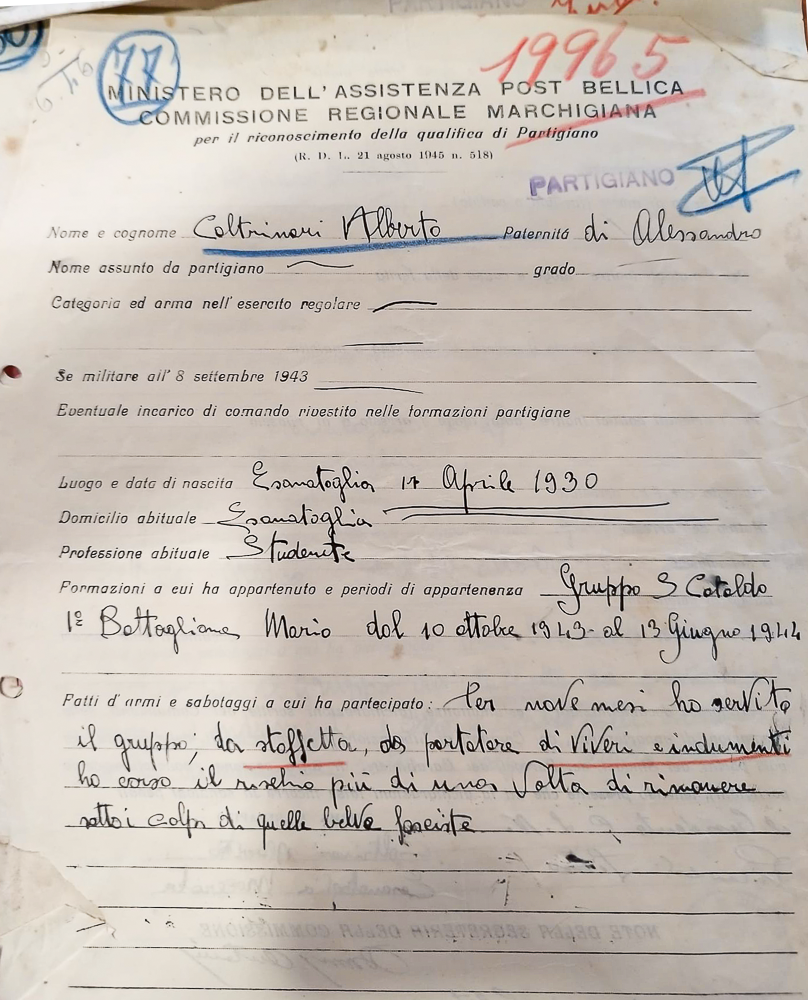 77
19965
MINISTERO DELL'ASSISTENZA POST BELLICA
COMMISSIONE REGIONALE MARCHIGIANA
per il riconoscimento della qualifica di Partigiano
(R. D. L. 21 agosto 1945 n. 518)
PARTIGIANO
Nome e cognome Coltrinari Alberto Paternità di Alessandro
Nome assunto da partigiano grado
Categoria ed arma nell'esercito regolare
Se militare all'8 settembre 1943
Eventuale incarico di comando rivestito nelle formazioni partigiane
Luogo e data di nascita Esanatoglia 17 Aprile 1930
Domicilio abituale Esanatoglia
Professione abituale Studente
Formazioni a cui ha appartenuto e periodi di appartenenza Gruppo S Cataldo
1º Battaglione Mario dal 10 ottobre 1943 al 13 Giugno 1944
Fatti d'armi e sabotaggi a cui ha partecipato: Per nove mesi ho servito
il gruppo; da staffetta, da portatore di viveri e indumenti
ho corso il rischio più di una volta di rimanere
sotto i colpi di quelle belve fasciste